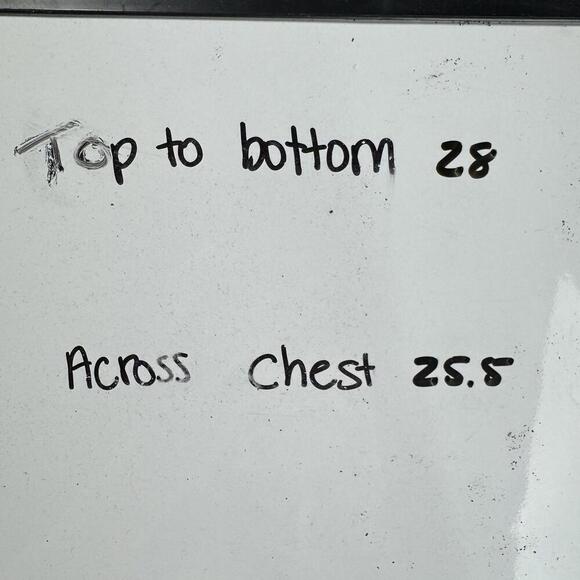 Top to bottom 28
Across Chest 25.5